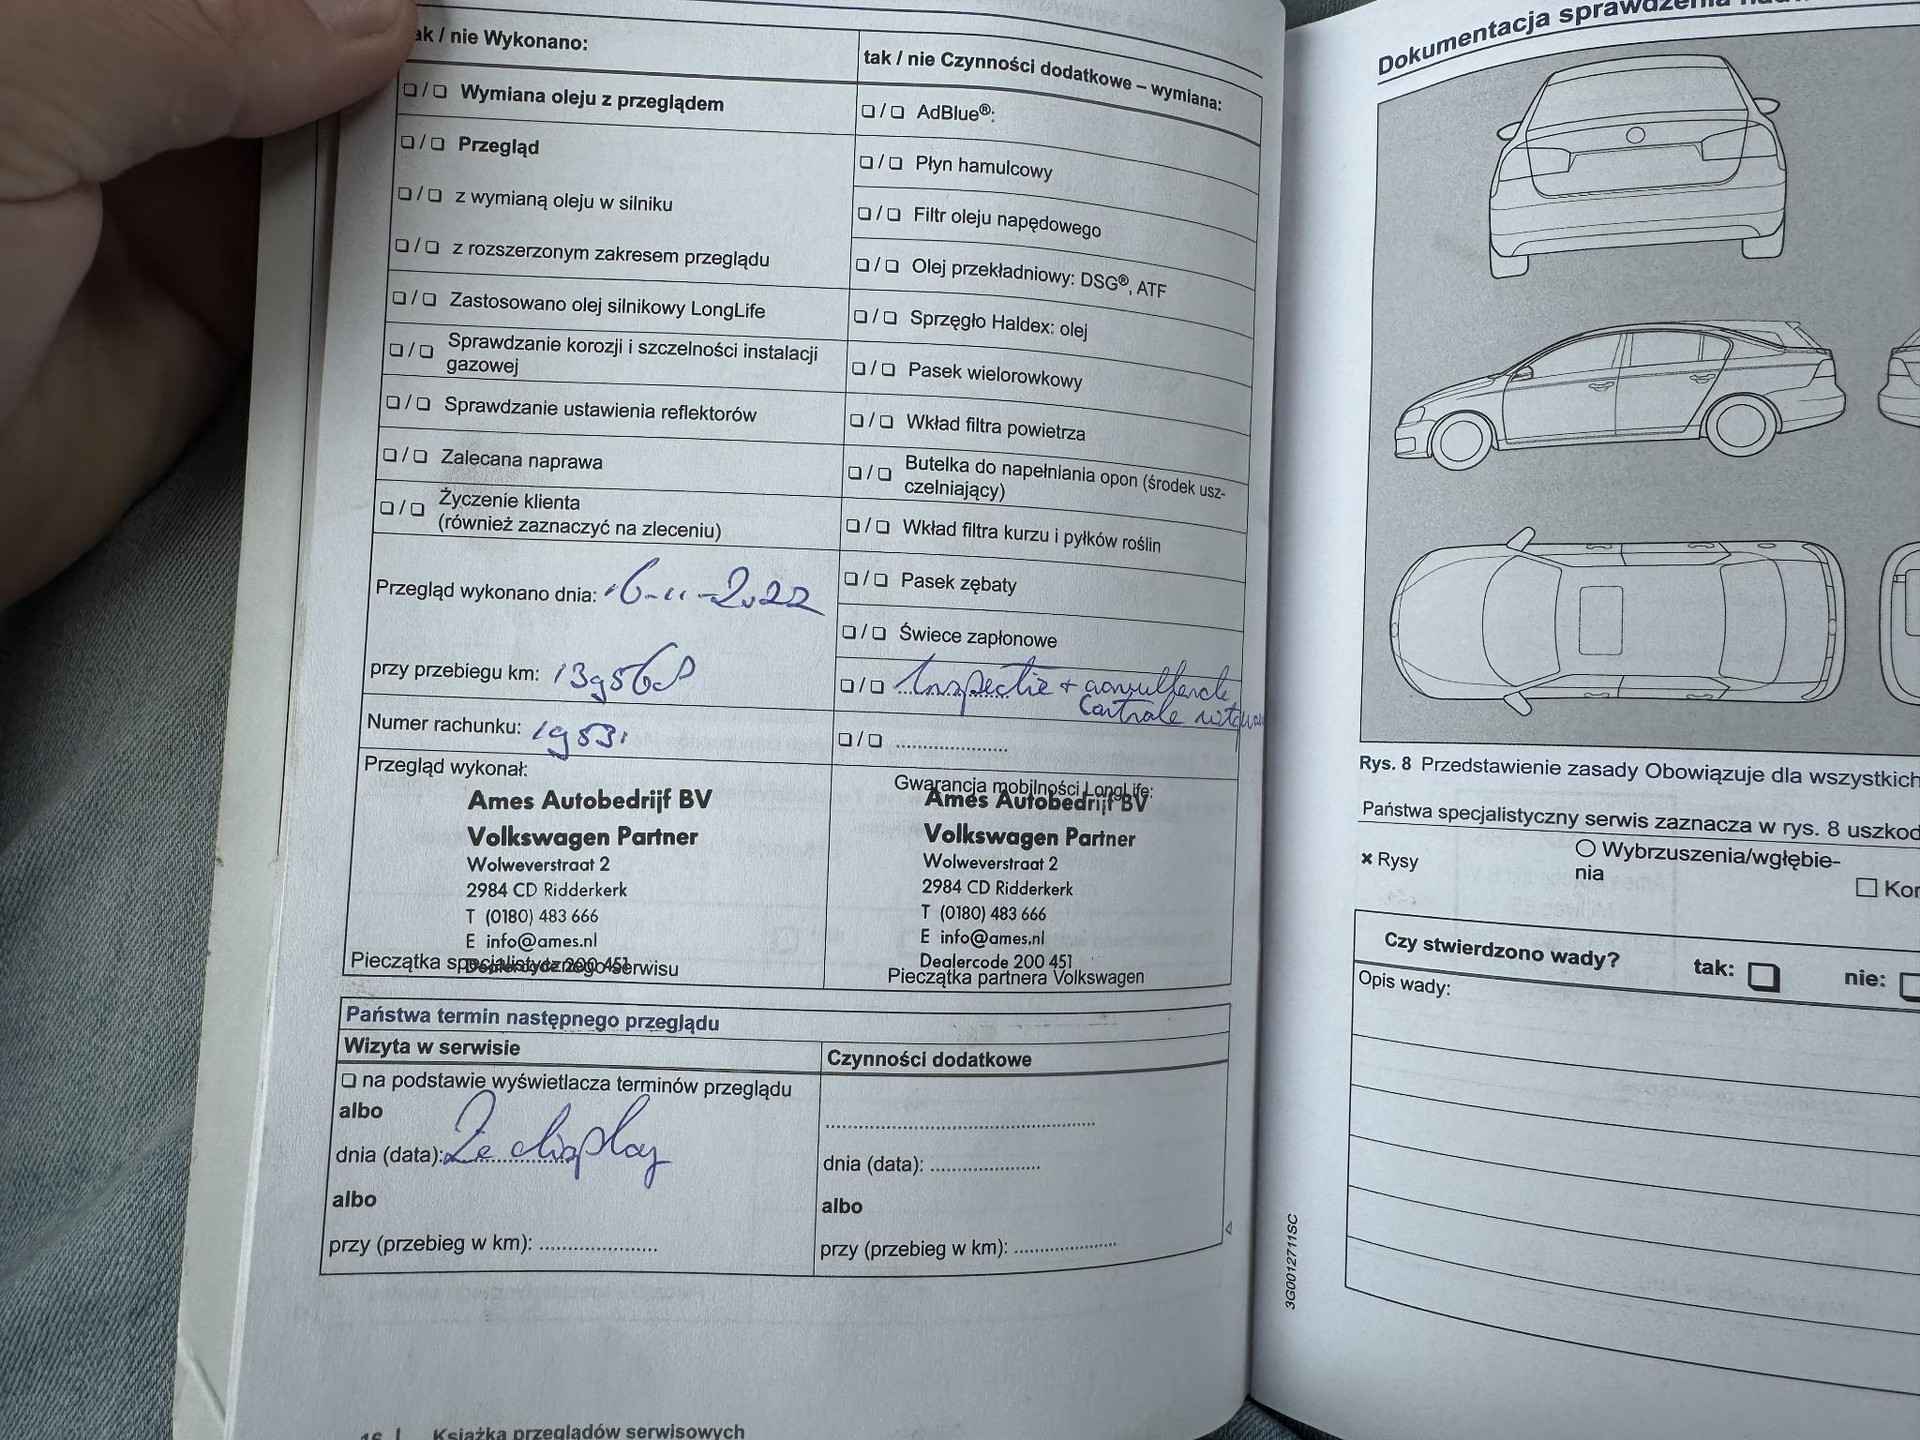 tak / nie Wykonano:
❑ / ❑ Wymiana oleju z przeglądem
❑ / ❑ Przegląd
❑ / ❑ z wymianą oleju w silniku
❑ / ❑ z rozszerzonym zakresem przeglądu
❑ / ❑ Zastosowano olej silnikowy LongLife
❑ / ❑ Sprawdzanie korozji i szczelności instalacji
gazowej
❑ / ❑ Sprawdzanie ustawienia reflektorów
❑ / ❑ Zalecana naprawa
❑ / ❑ Życzenie klienta
(również zaznaczyć na zleceniu)
Przegląd wykonano dnia: 16-11-2022
przy przebiegu km: 139568
Numer rachunku: 19531
Przegląd wykonał:
Ames Autobedrijf BV
Volkswagen Partner
Wolweverstraat 2
2984 CD Ridderkerk
T (0180) 483 666
E info@ames.nl
Dealercode 200 451
Pieczątka specjalistycznego serwisu
tak / nie Czynności dodatkowe – wymiana:
❑ / ❑ AdBlue®:
❑ / ❑ Płyn hamulcowy
❑ / ❑ Filtr oleju napędowego
❑ / ❑ Olej przekładniowy: DSG®, ATF
❑ / ❑ Sprzęgło Haldex: olej
❑ / ❑ Pasek wielorowkowy
❑ / ❑ Wkład filtra powietrza
❑ / ❑ Butelka do napełniania opon (środek usz-
czelniający)
❑ / ❑ Wkład filtra kurzu i pyłków roślin
❑ / ❑ Pasek zębaty
❑ / ❑ Świece zapłonowe
❑ / ❑ Inspectie + aanvullende
❑ / ❑ ....................
Gwarancja mobilności LongLife:
Ames Autobedrijf BV
Volkswagen Partner
Wolweverstraat 2
2984 CD Ridderkerk
T (0180) 483 666
E info@ames.nl
Dealercode 200 451
Pieczątka partnera Volkswagen
Państwa termin następnego przeglądu
Wizyta w serwisie
❑ na podstawie wyświetlacza terminów przeglądu
albo
dnia (data): Zie display
albo
przy (przebieg w km): .....................
Czynności dodatkowe
dnia (data): ....................
albo
przy (przebieg w km): ...................
16 | Książka przeglądów serwisowych
Dokumentacja sprawdzenia
Rys. 8 Przedstawienie zasady Obowiązuje dla wszystkich
Państwa specjalistyczny serwis zaznacza w rys. 8
× Rysy
○ Wybrzuszenia/wgłębie-
nia
Czy stwierdzono wady? tak: ❑ nie: ❑
Opis wady:
3G0012711SC